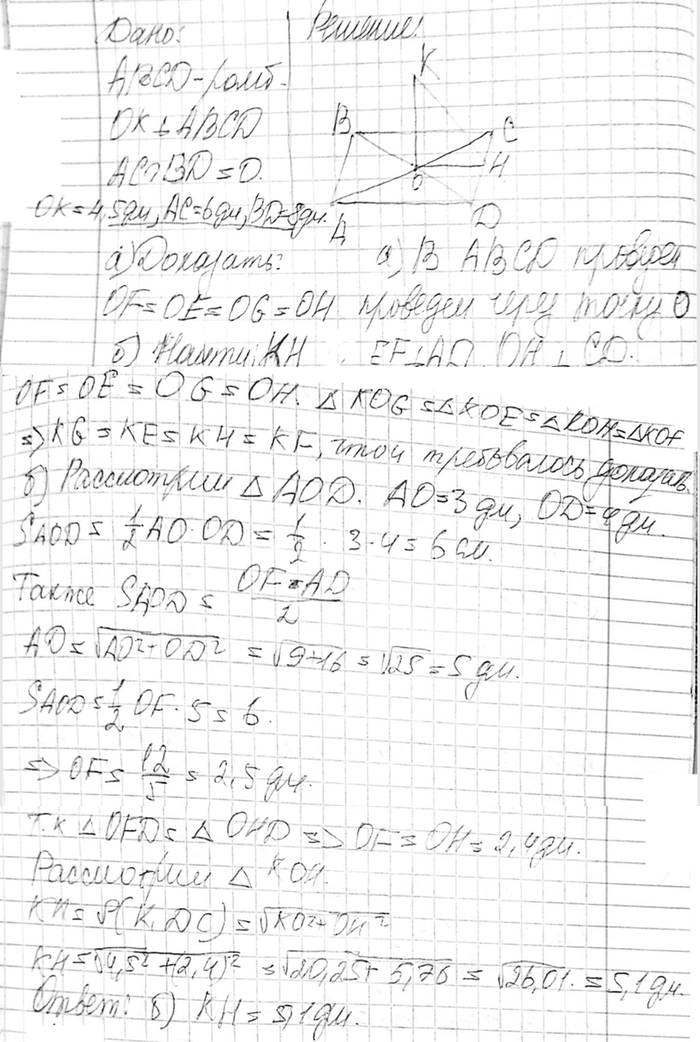 Дано: Решение:
ABCD - ромб.
OK ⊥ ABCD
AC ∩ BD = O.
OK = 4,5 дм, AC = 6 дм, BD = 8 дм.
K
B
C
H
O
A
D
а) Доказать: а) В ABCD проведем
OF = OE = OG = OH проведем через точку O
б) Найти: KH EF ⊥ AD, OH ⊥ CD.
OF = OE = OG = OH. △ KOG = △ KOE = △ KOH = △ KOF
=> KG = KE = KH = KF, что и требовалось доказать.
б) Рассмотрим △ AOD. AO = 3 дм, OD = 4 дм.
SAOD = 1/2 AO · OD = 1/2 · 3 · 4 = 6 см.
Также SAOD = OF · AD / 2
AD = √AO² + OD² = √9+16 = √25 = 5 дм.
SAOD = 1/2 OF · 5 = 6.
=> OF = 12/5 = 2,5 дм.
т.к △ OFD = △ OHD => OF = OH = 2,4 дм.
Рассмотрим △ KOH.
KH = P(K, DC) = √KO² + OH²
KH = √4,5² + (2,4)² = √20,25 + 5,76 = √26,01 = 5,1 дм.
Ответ: б) KH = 5,1 дм.